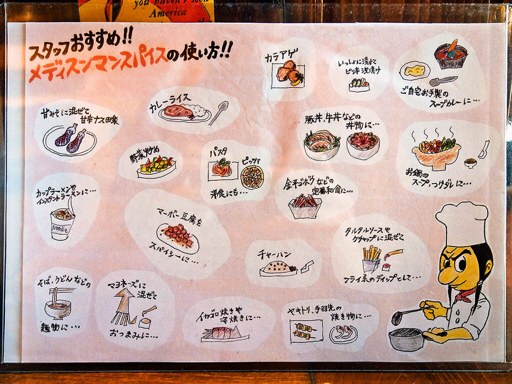 you haven't seen
America
スタッフおすすめ!!
メディスンマンスパイスの使い方!!
カラアゲ
いっしょに漬けて
ピリ辛浅漬け
ご自宅お手製の
スープカレーに…
甘みそに混ぜて
甘辛ナス田楽
カレーライス
豚丼、牛丼などの
丼物に…
野菜炒め
パスタ
ピッツァ
洋食にも…
金平ゴボウなどの
定番和食に…
お鍋の
スープ、つけダレに…
カップラーメンや
インスタントラーメンに…
マーボー豆腐を
スパイシーに…
チャーハン
タルタルソースや
ケチャップに混ぜて
フライ系のディップとして…
そば、うどんなどの
麺物に…
マヨネーズに
混ぜて
おつまみに…
イカゴロ焼きや
ヤキトリ、手羽先の
焼き物に…